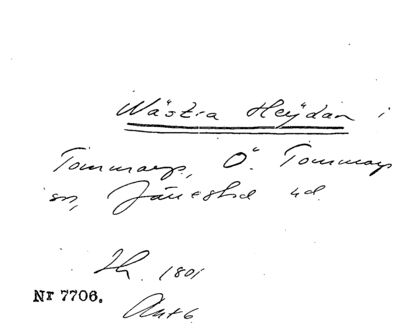 Wästra Heÿdan i
Tommarp, Ö. Tommarp
sn, Järrestad hd.
1801
Nr 7706.